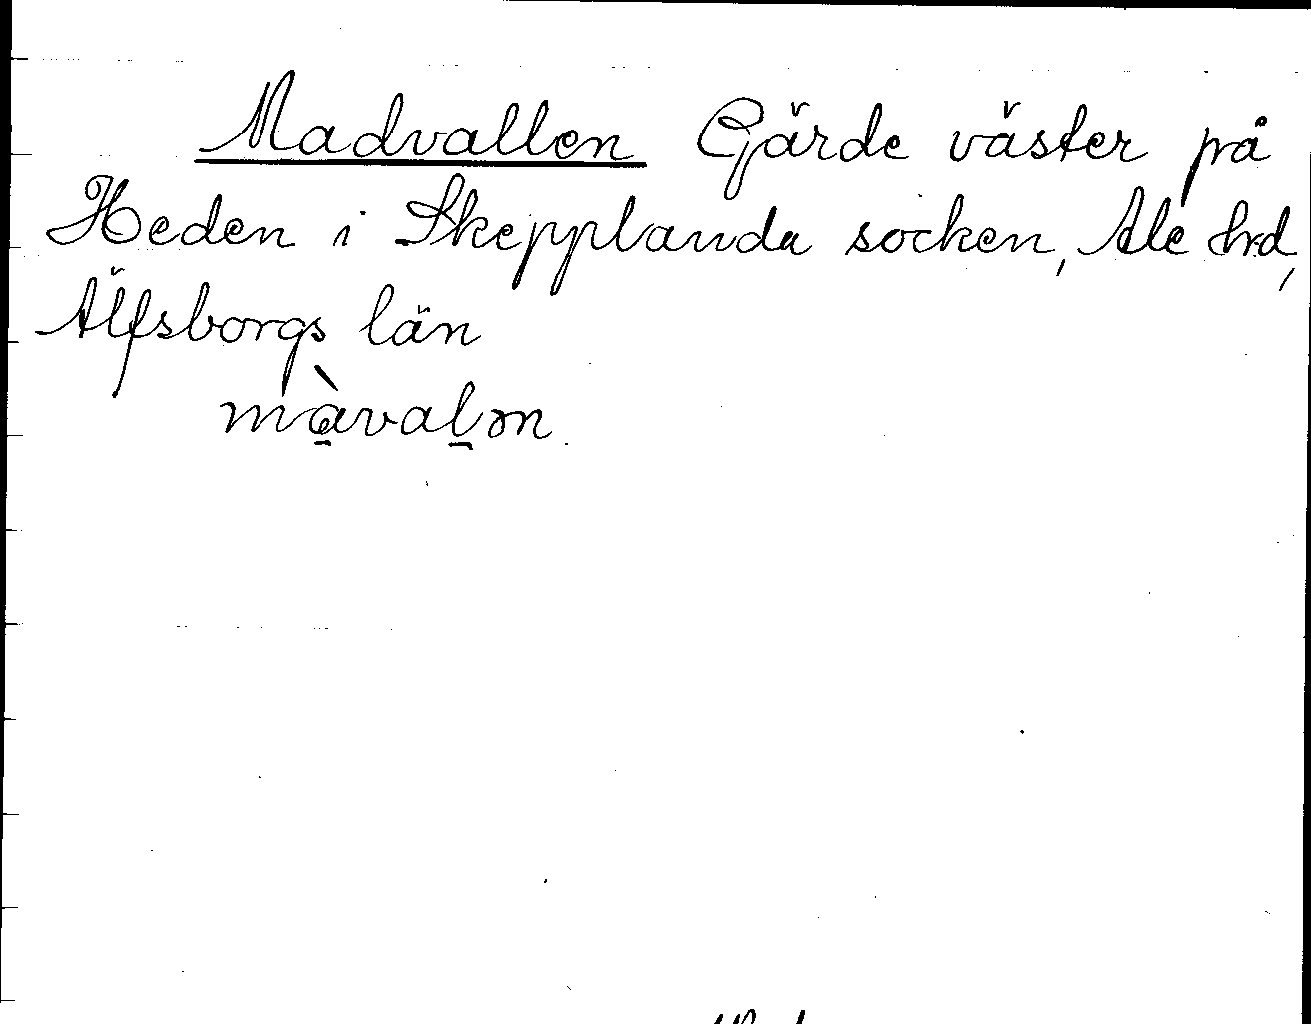 Madvallen Gärde väster på
Heden i Skepplanda socken, Ale hrd,
Älfsborgs län
màvaḻən.